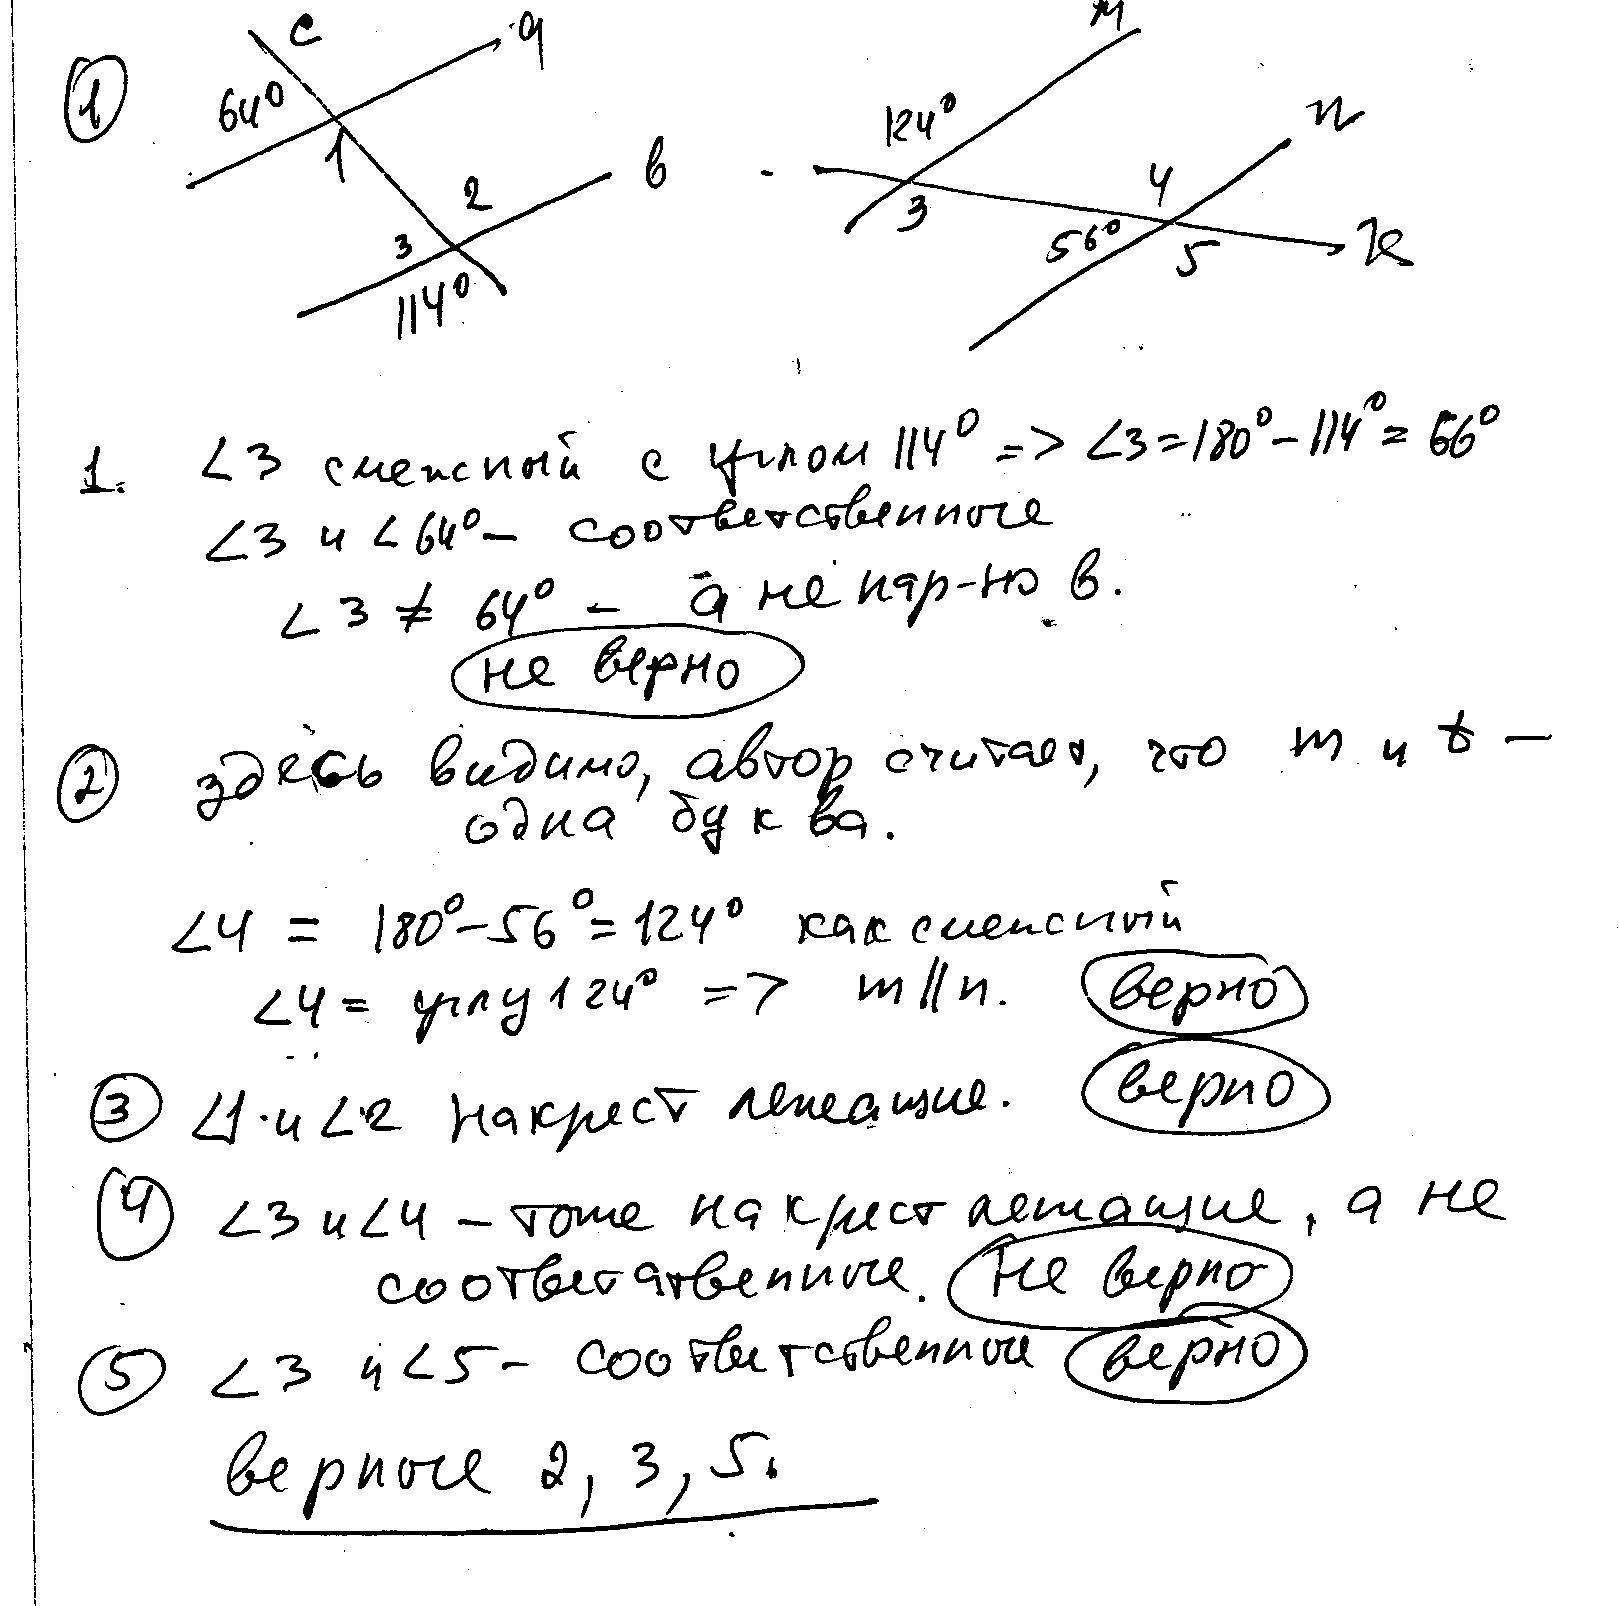 1
c
a
64°
1
2
в
3
114°
м
124°
n
3
4
56°
5
k
1. ∠3 смежный с углом 114° => ∠3=180°-114°=66°
∠3 и ∠64° - соответственные
∠3 ≠ 64° - а не пар-но в.
не верно
2 здесь видимо, автор считает, что m и t -
одна буква.
∠4 = 180°-56°=124° как смежный
∠4 = углу 124° => m || n. верно
3 ∠1 и ∠2 накрест лежащие. верно
4 ∠3 и ∠4 - тоже накрест лежащие, а не
соответственные. не верно
5 ∠3 и ∠5 - соответственные верно
верные 2, 3, 5.